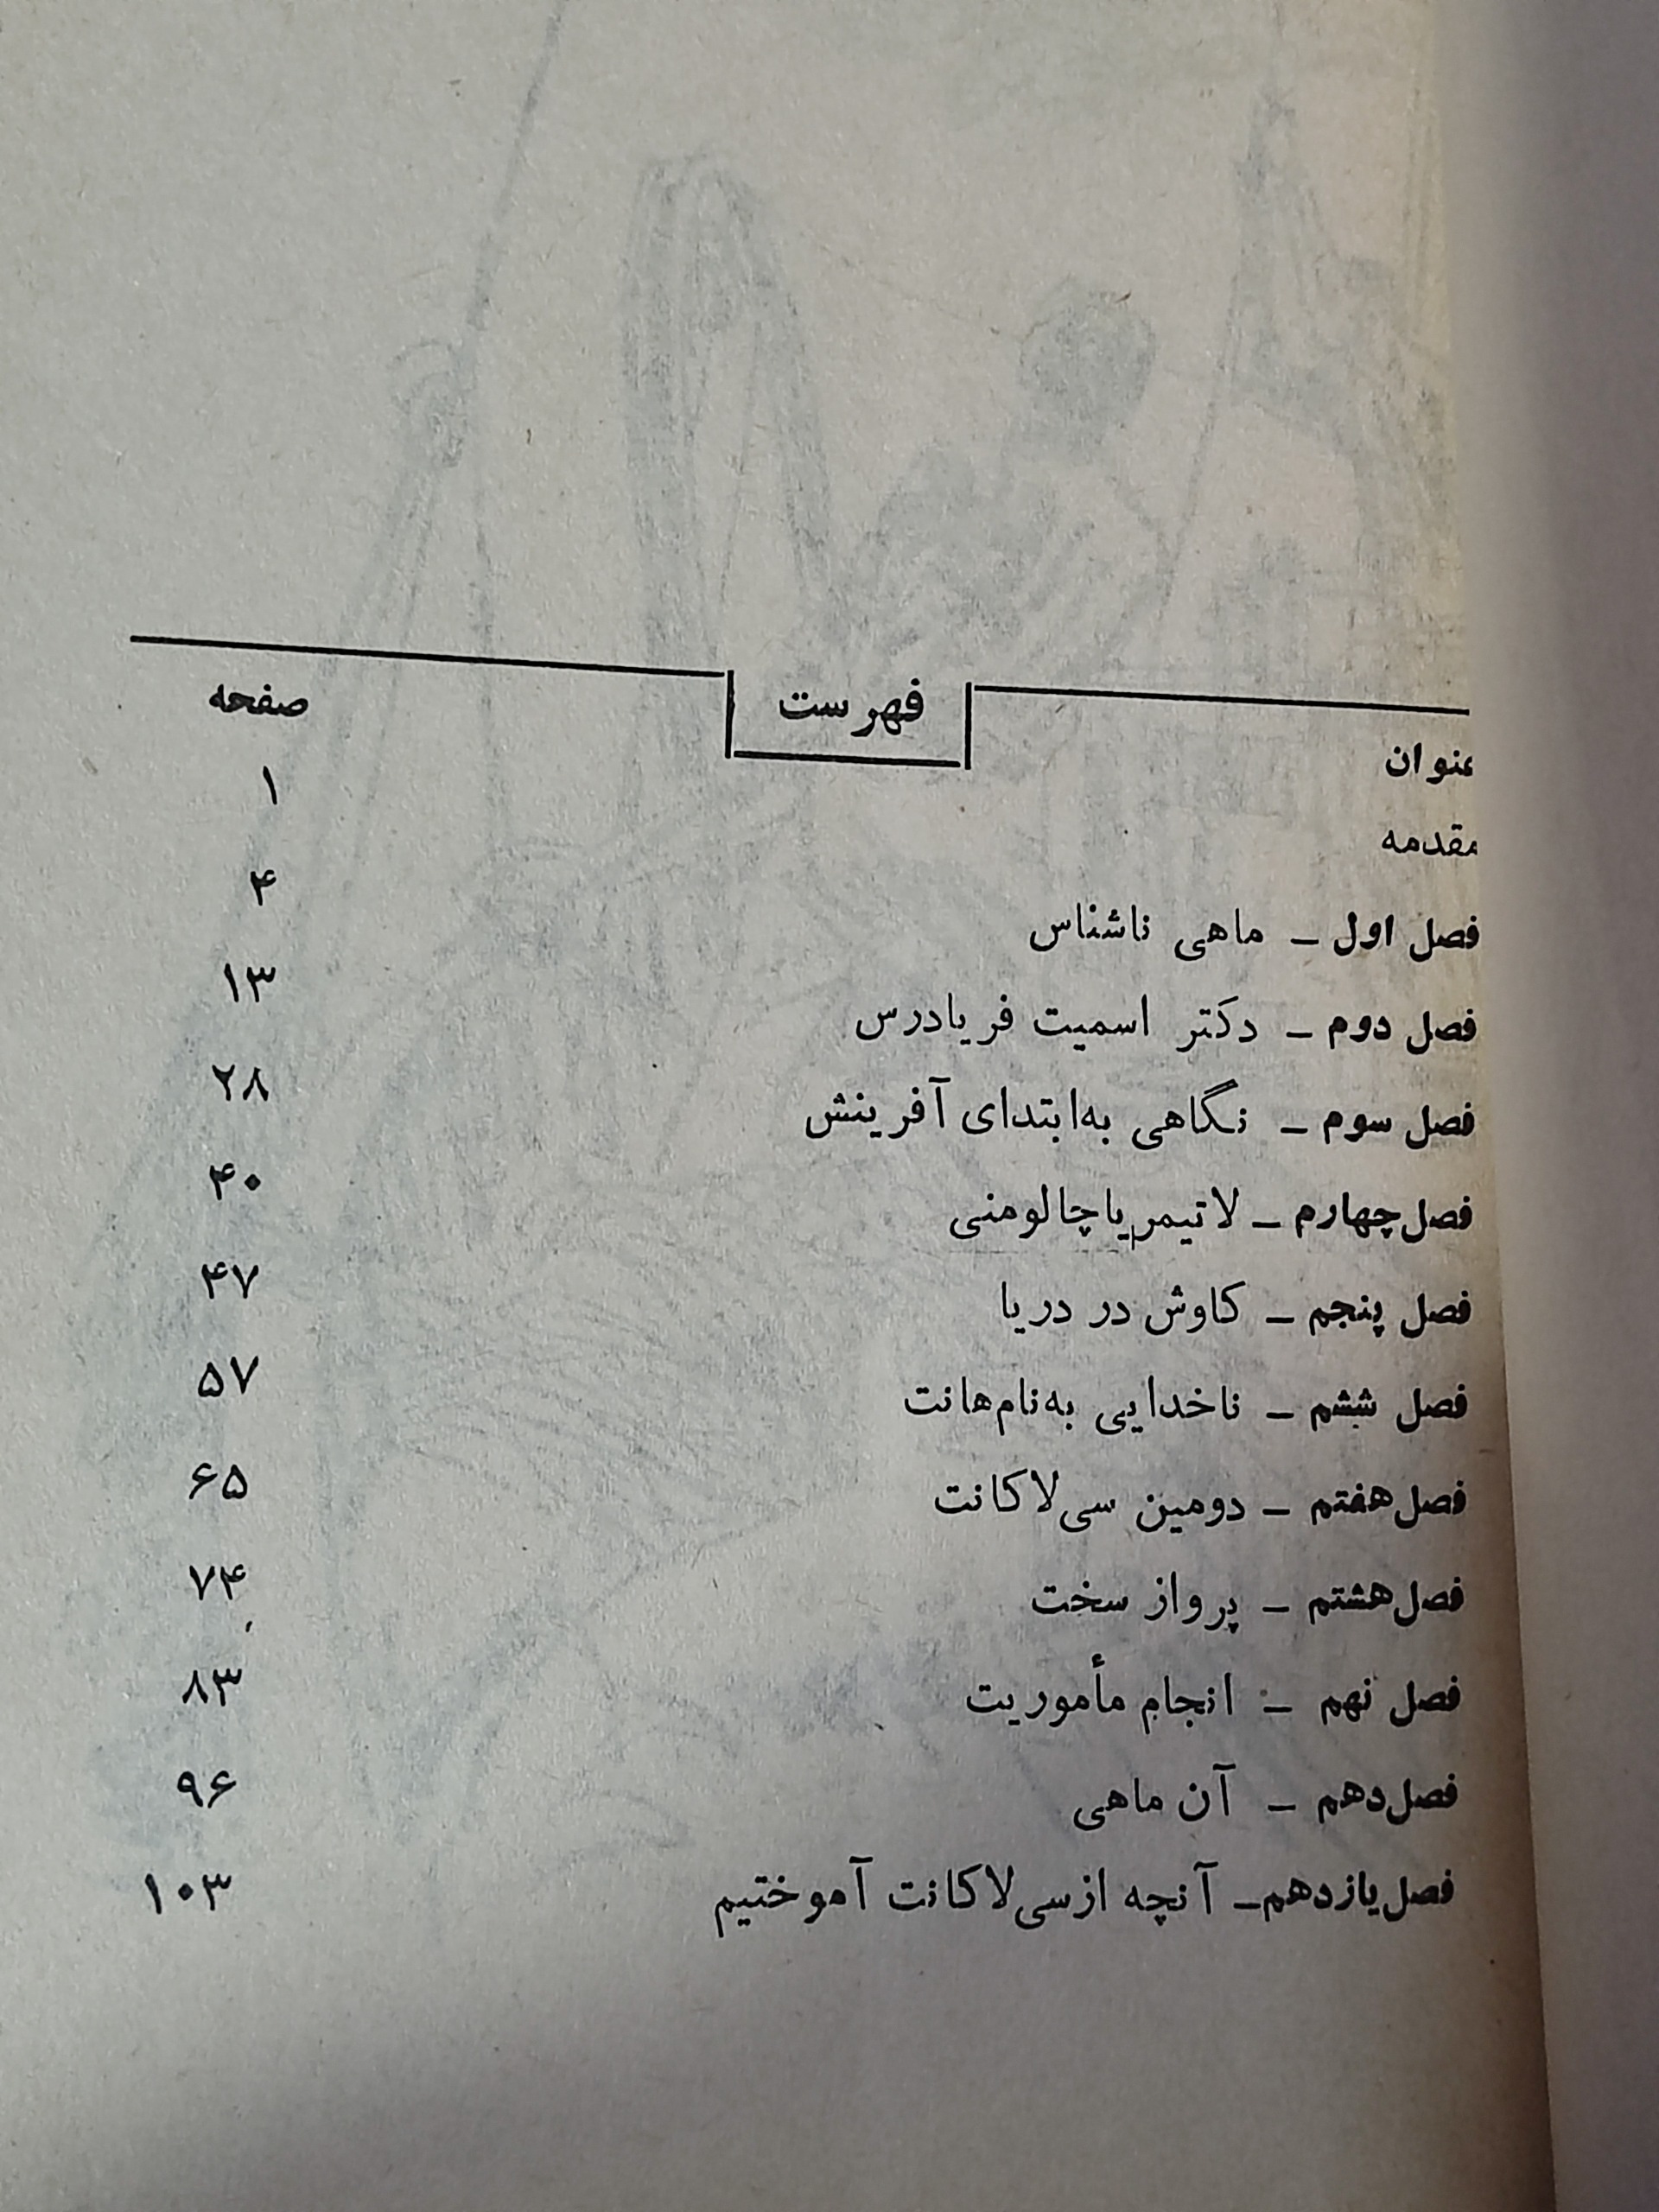 فهرست
عنوان صفحه
مقدمه ۱
فصل اول – ماهی ناشناس ۴
فصل دوم – دکتر اسمیت فریادرس ۱۳
فصل سوم – نگاهی به‌ابتدای آفرینش ۲۸
فصل چهارم – لاتیمریا چالومنی ۴۰
فصل پنجم – کاوش در دریا ۴۷
فصل ششم – ناخدایی به‌نام‌هانت ۵۷
فصل هفتم – دومین سی‌لاکانت ۶۵
فصل هشتم – پرواز سخت ۷۴
فصل نهم – انجام مأموریت ۸۳
فصل دهم – آن ماهی ۹۶
فصل یازدهم – آنچه از سی‌لاکانت آموختیم ۱۰۳